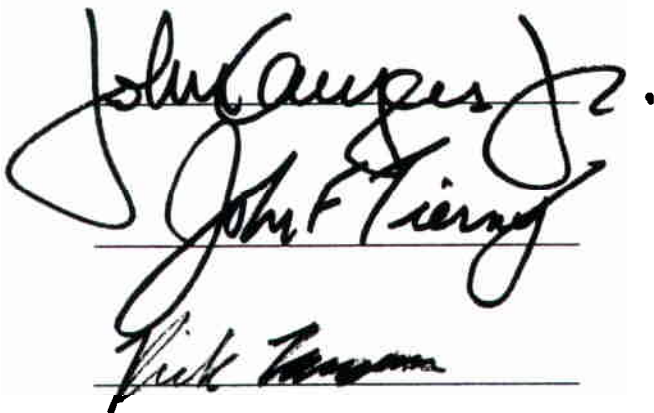 John Conyers Jr.
John F Tierney
Rick